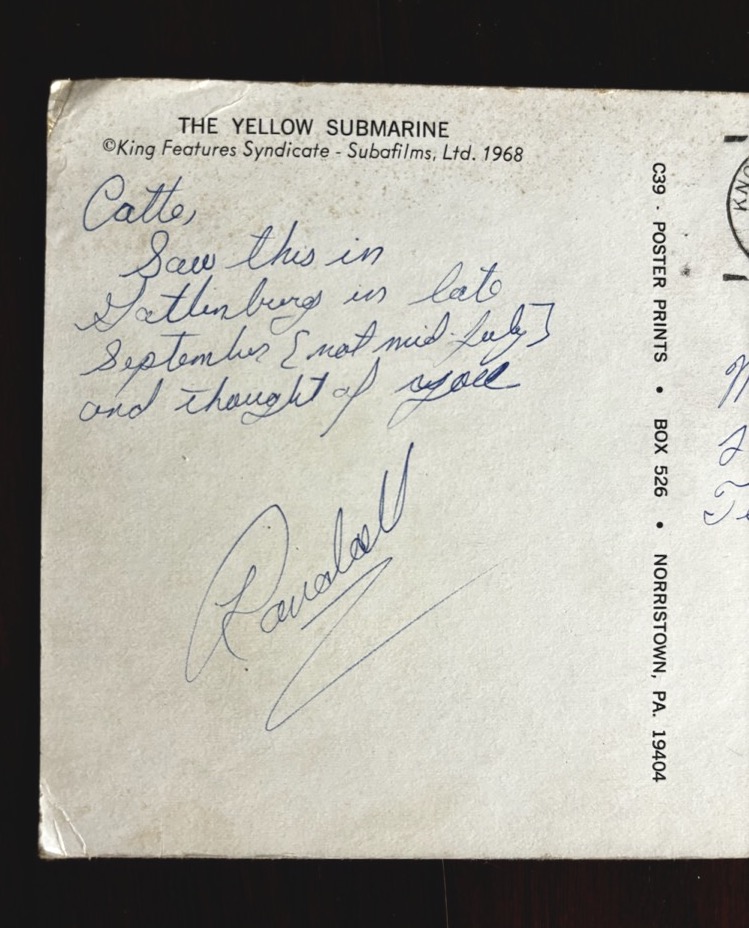 THE YELLOW SUBMARINE
©King Features Syndicate - Subafilms, Ltd. 1968
Catte,
Saw this in
Gatlinburg in late
September [not mid-July]
and thought of you
Randall
C39 · POSTER PRINTS • BOX 526 • NORRISTOWN, PA. 19404
KNO